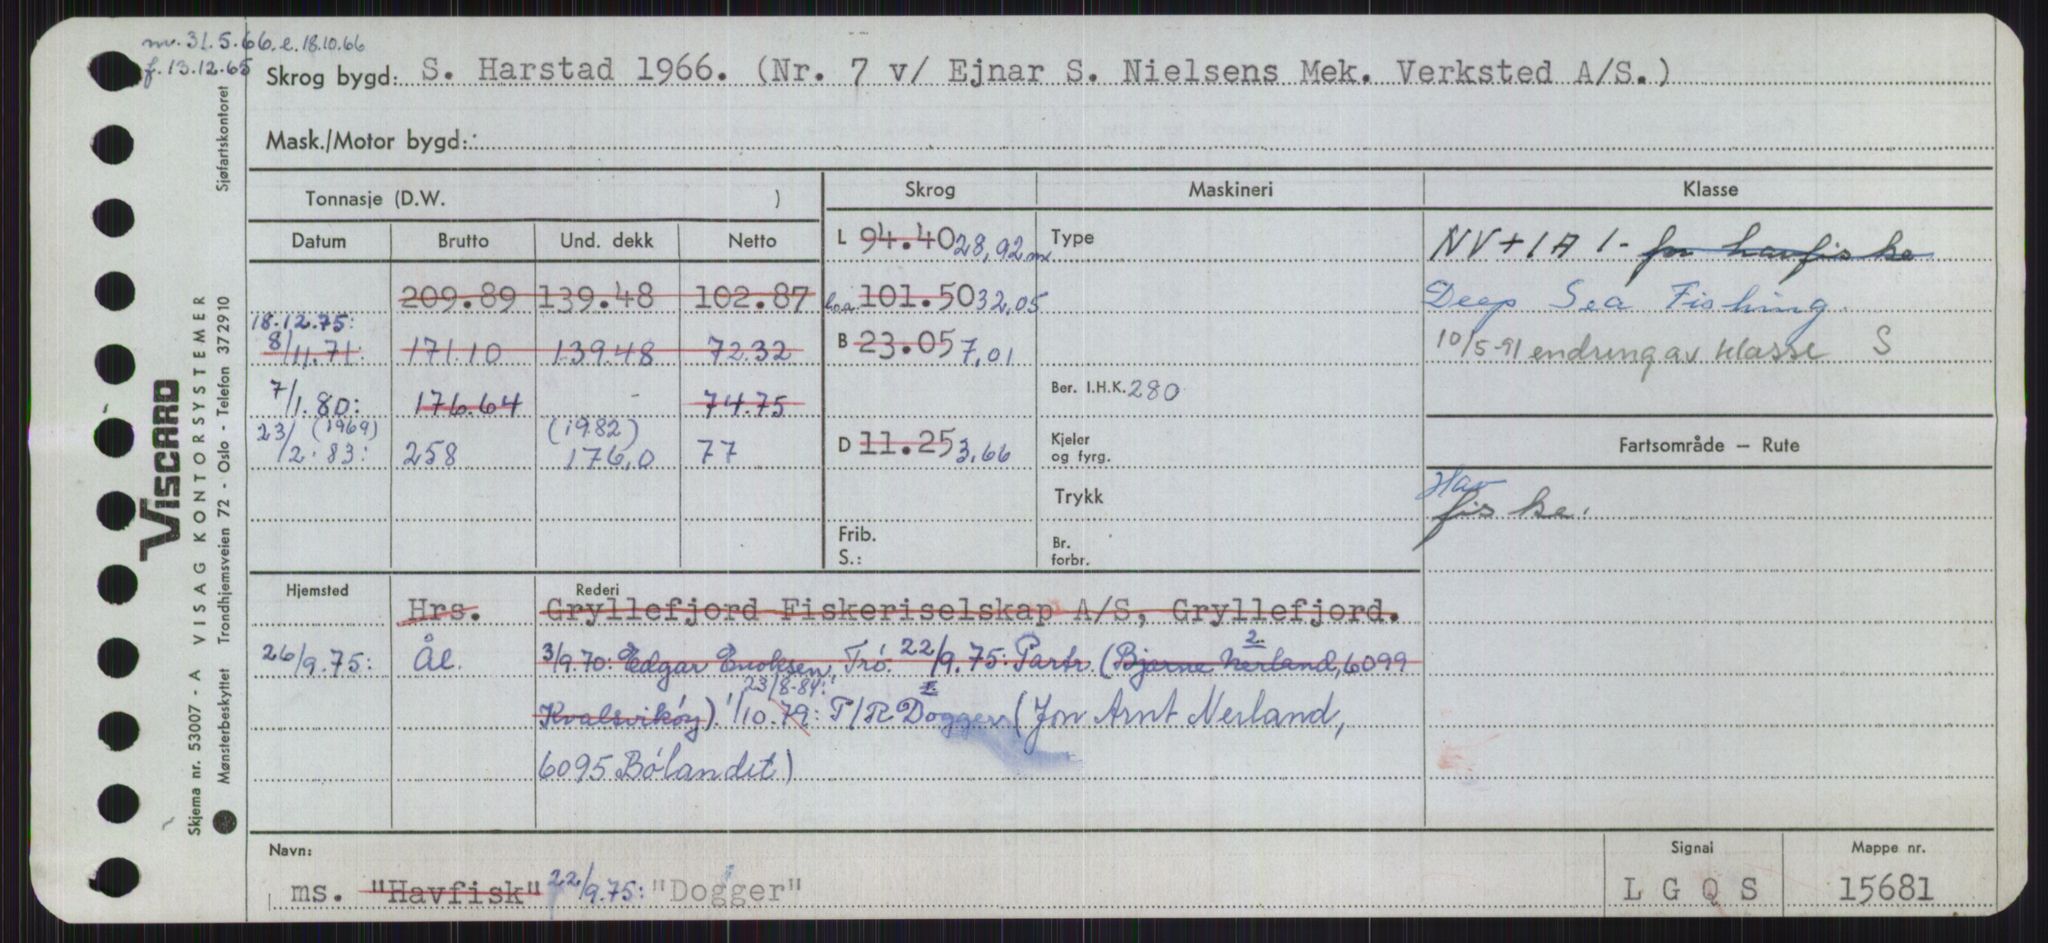 nv. 31.5.66. e. 18.10.66
f. 13.12.65
Skrog bygd: S. Harstad 1966. (Nr. 7 v/ Ejnar S. Nielsens Mek. Verksted A/S.)
Mask./Motor bygd:
Tonnasje (D.W. ) Skrog Maskineri Klasse
Datum Brutto Und. dekk Netto
L 94.40 28,92 m Type NV+1A1- for havfiske
209.89 139.48 102.87 loa 101.50 32,05 Deep Sea Fishing
18.12.75:
8/11.71: 171.10 139.48 72.32 B 23.05 7,01 10/5-91 endring av klasse S
7/1.80: 176.64 - 74.75 Ber. I.H.K. 280
23/ (1969) (1982)
/2.83: 258 176,0 77 D 11.25 3,66 Kjeler og fyrg. Fartsområde — Rute
Trykk Hav
fiske.
Frib.
S.:
Br.
forbr.
Hjemsted Rederi
Hrs. Gryllefjord Fiskeriselskap A/S, Gryllefjord.
26/9.75: Ål. 3/9.70: Edgar Enoksen, Trö. 22/9.75: Partr. (Bjarne Nerland, 6099
2.
23/8-84:
Kvalsvikøy) 1/10.79: P/R Dogger (Jon Arnt Nerland,
6095 Bölandet)
Navn: Signal Mappe nr.
ms. "Havfisk" 22/9.75: "Dogger" L G Q S 15681
VISCARD
Skjema nr. 53007 - A VISAG KONTORSYSTEMER
Mønsterbeskyttet Trondhjemsveien 72 - Oslo - Telefon 372910 Sjøfartskontoret